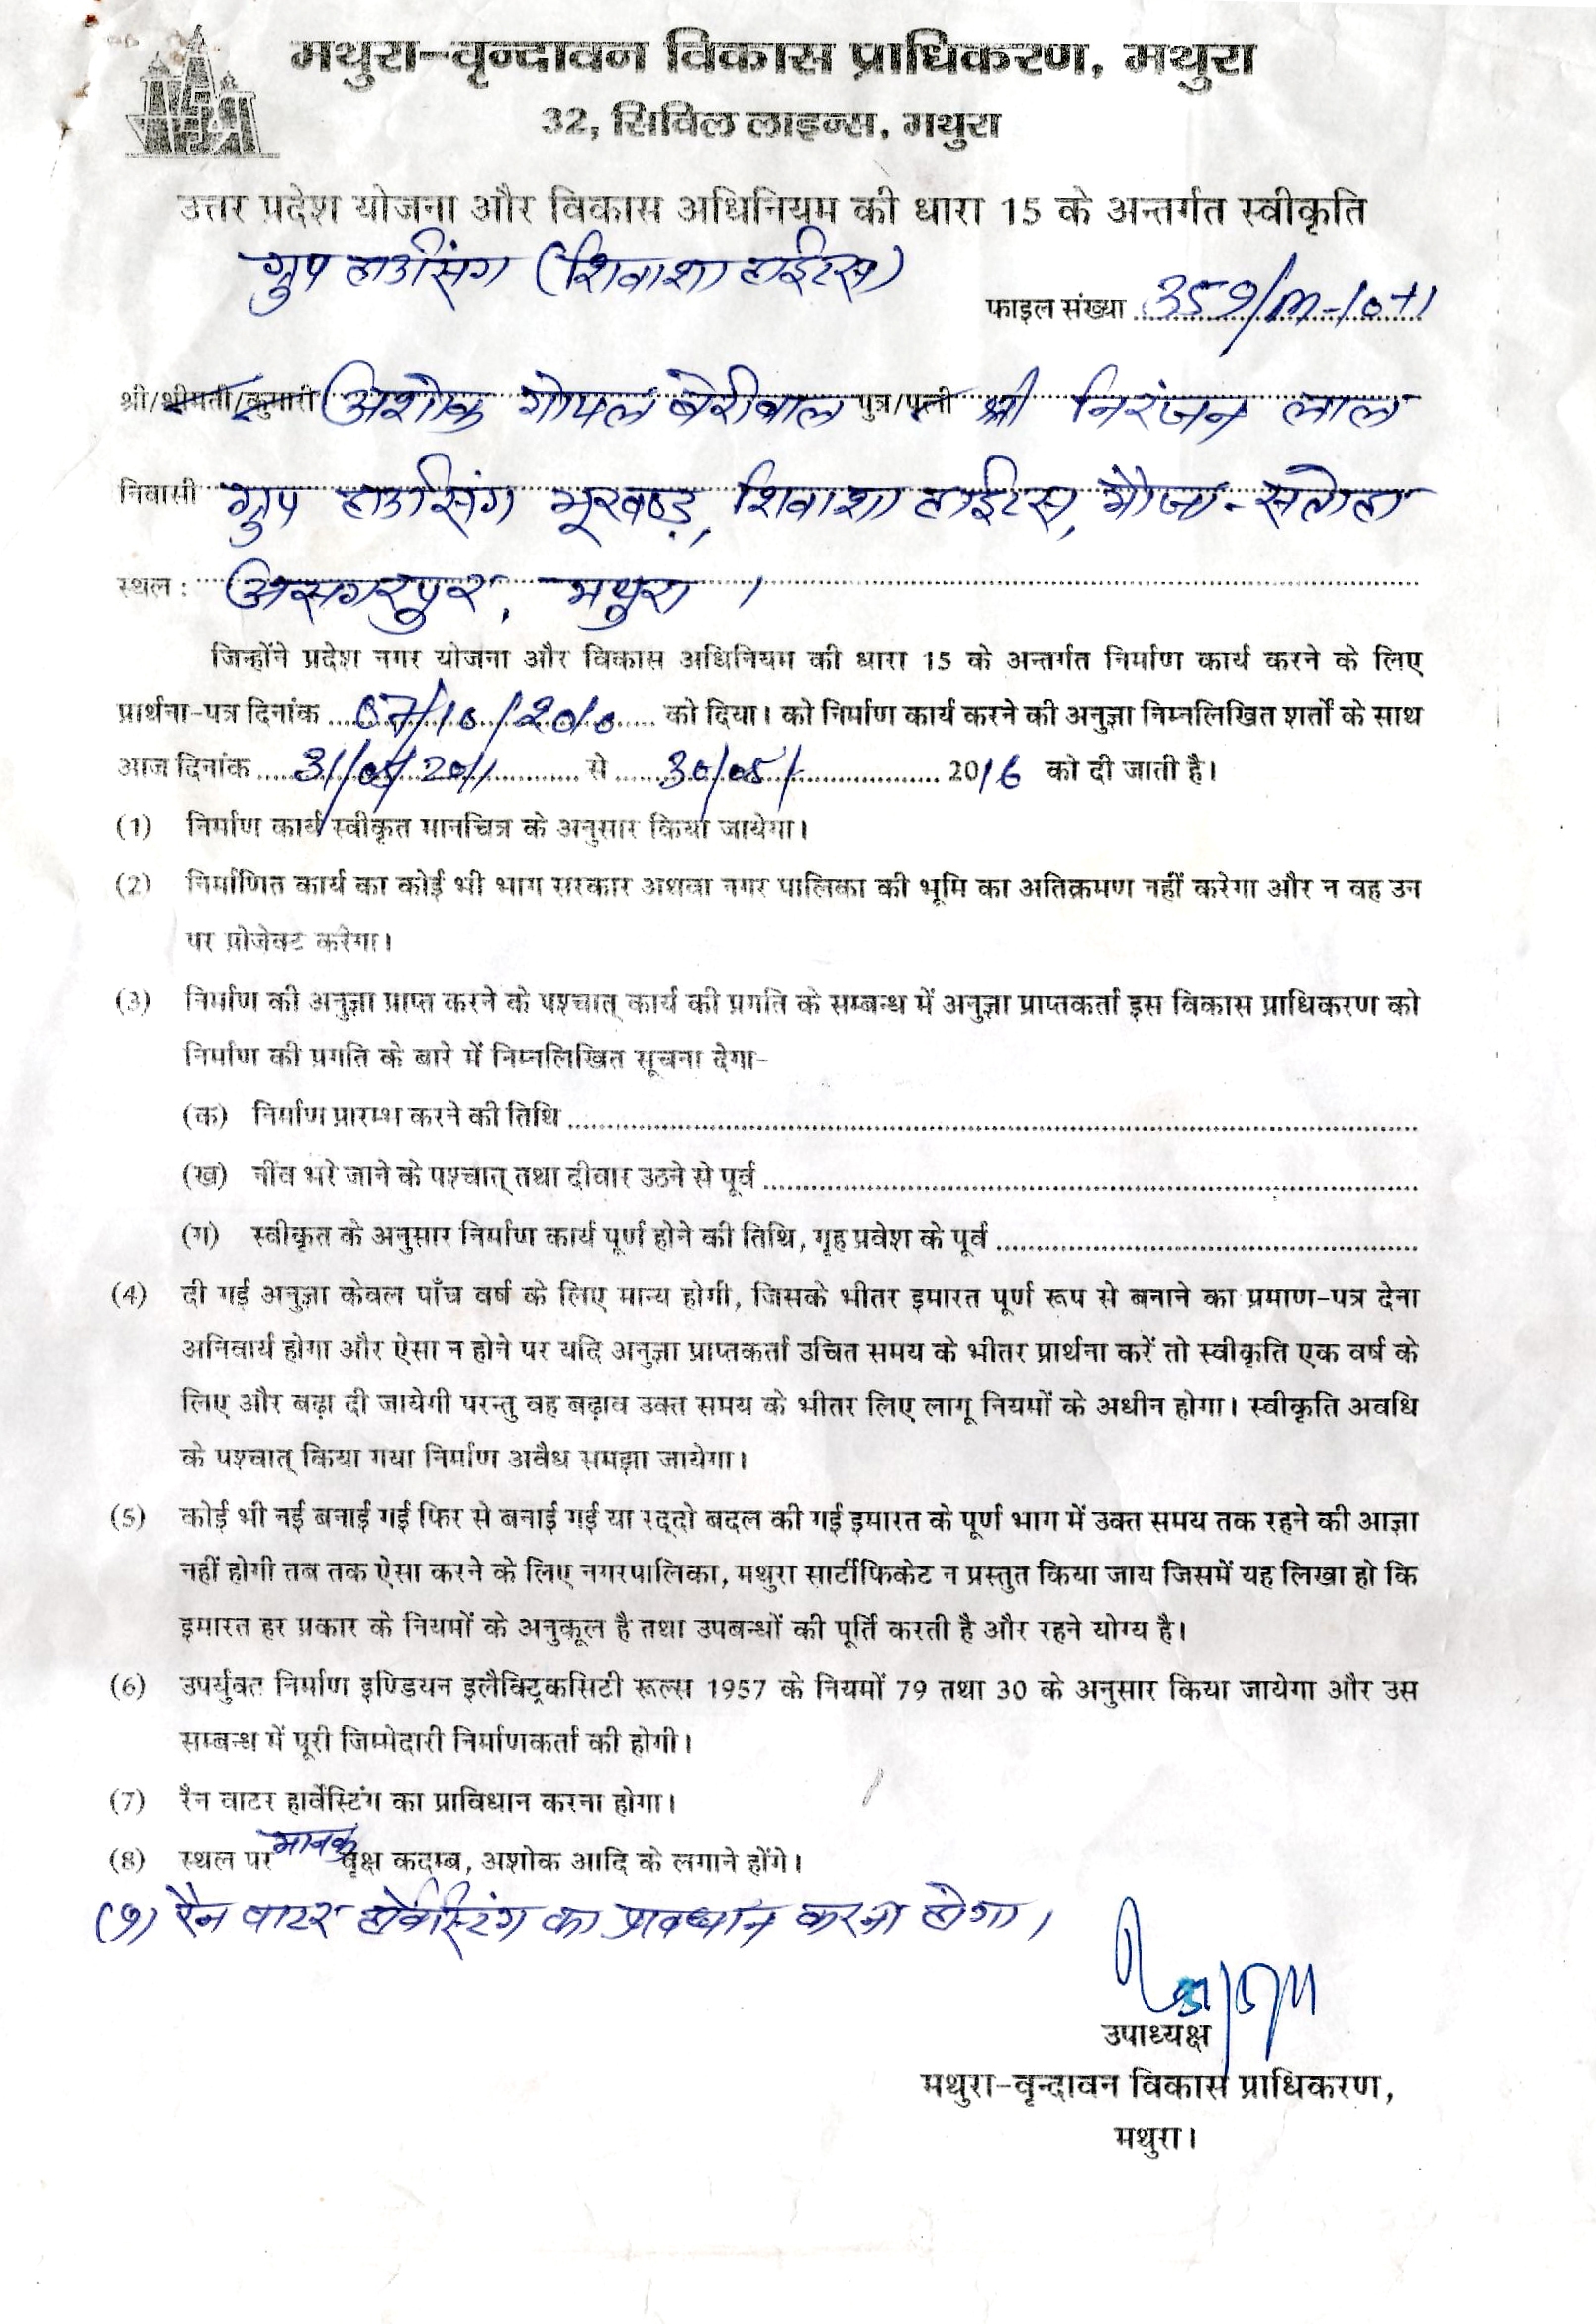 मथुरा-वृन्दावन विकास प्राधिकरण, मथुरा
32, सिविल लाइन्स, मथुरा
उत्तर प्रदेश योजना और विकास अधिनियम की धारा 15 के अन्तर्गत स्वीकृति
ग्रुप हाउसिंग (शिवाशा हाईट्स)
फाइल संख्या 359/m-10-11
श्री/श्रीमती/कुमारी अशोक गोयल बेरीवाल पुत्र/पत्नी श्री निरंजन लाल
निवासी ग्रुप हाउसिंग भूखण्ड, शिवाशा हाईट्स, मौजा-सलेहा
स्थल : असगरपुर, मथुरा ।
जिन्होंने प्रदेश नगर योजना और विकास अधिनियम की धारा 15 के अन्तर्गत निर्माण कार्य करने के लिए
प्रार्थना-पत्र दिनांक 07/10/2010 को दिया। को निर्माण कार्य करने की अनुज्ञा निम्नलिखित शर्तों के साथ
आज दिनांक 31/05/2011 से 30/05/ 2016 को दी जाती है।
(1) निर्माण कार्य स्वीकृत मानचित्र के अनुसार किया जायेगा।
(2) निर्माणित कार्य का कोई भी भाग सरकार अथवा नगर पालिका की भूमि का अतिक्रमण नहीं करेगा और न वह उन
पर प्रोजेक्ट करेगा।
(3) निर्माण की अनुज्ञा प्राप्त करने के पश्चात् कार्य की प्रगति के सम्बन्ध में अनुज्ञा प्राप्तकर्ता इस विकास प्राधिकरण को
निर्माण की प्रगति के बारे में निम्नलिखित सूचना देगा-
(क) निर्माण प्रारम्भ करने की तिथि
(ख) नींव भरे जाने के पश्चात् तथा दीवार उठने से पूर्व
(ग) स्वीकृत के अनुसार निर्माण कार्य पूर्ण होने की तिथि, गृह प्रवेश के पूर्व
(4) दी गई अनुज्ञा केवल पाँच वर्ष के लिए मान्य होगी, जिसके भीतर इमारत पूर्ण रूप से बनाने का प्रमाण-पत्र देना
अनिवार्य होगा और ऐसा न होने पर यदि अनुज्ञा प्राप्तकर्ता उचित समय के भीतर प्रार्थना करें तो स्वीकृति एक वर्ष के
लिए और बढ़ा दी जायेगी परन्तु वह बढ़ाव उक्त समय के भीतर लिए लागू नियमों के अधीन होगा। स्वीकृति अवधि
के पश्चात् किया गया निर्माण अवैध समझा जायेगा।
(5) कोई भी नई बनाई गई फिर से बनाई गई या रद्दो बदल की गई इमारत के पूर्ण भाग में उक्त समय तक रहने की आज्ञा
नहीं होगी तब तक ऐसा करने के लिए नगरपालिका, मथुरा सार्टीफिकेट न प्रस्तुत किया जाय जिसमें यह लिखा हो कि
इमारत हर प्रकार के नियमों के अनुकूल है तथा उपबन्धों की पूर्ति करती है और रहने योग्य है।
(6) उपर्युक्त निर्माण इण्डियन इलैक्ट्रिकसिटी रूल्स 1957 के नियमों 79 तथा 30 के अनुसार किया जायेगा और उस
सम्बन्ध में पूरी जिम्मेदारी निर्माणकर्ता की होगी।
(7) रैन वाटर हार्वेस्टिंग का प्राविधान करना होगा।
(8) स्थल पर मानक वृक्ष कदम्ब, अशोक आदि के लगाने होंगे।
(9) रैन वाटर होर्वेस्टिंग का प्रावधान करना होगा।
उपाध्यक्ष
मथुरा-वृन्दावन विकास प्राधिकरण,
मथुरा।